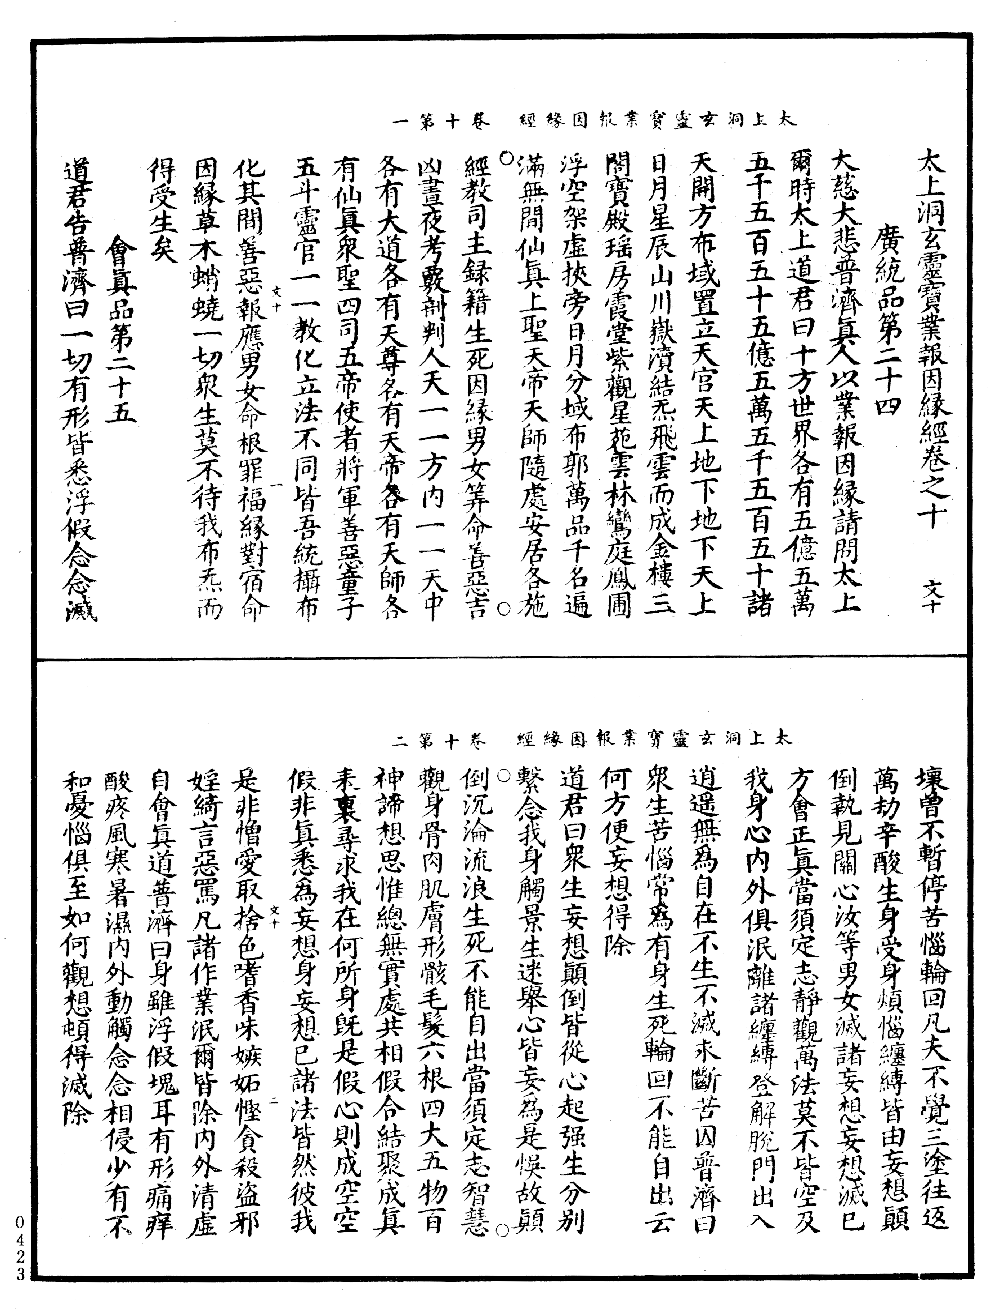 太上洞玄靈寶業報因緣經　卷十第一
太上洞玄靈寶業報因緣經卷之十　文十
廣統品第二十四
大慈大悲普濟真人以業報因緣請問太上
爾時太上道君曰十方世界各有五億五萬
五千五百五十五億五萬五千五百五十諸
天開方布域置立天宫天上地下地下天上
日月星辰山川嶽瀆結炁飛雲而成金樓三
閣寶殿瑶房霞堂紫觀星苑雲林鸞庭鳳圃
浮空架虚挾旁日月分域布郭萬品千名遍
滿無間仙真上聖天帝天師隨處安居各施
經教司主録籍生死因緣男女筭命善惡吉
凶晝夜考覈剖判人天一一方内一一天中
各有大道各有天尊各有天帝各有天師各
有仙真衆聖四司五帝使者將軍善惡童子
五斗靈官一一教化立法不同皆吾統攝布
化其間善惡報應男女命根罪福緣對宿命
因緣草木蛸蟯一切衆生莫不待我布炁而
得受生矣
會真品第二十五
道君告普濟曰一切有形皆悉浮假念念滅
文十
一
太上洞玄靈寶業報因緣經　卷十第二
壞曾不暫停苦惱輪回凡夫不覺三塗往返
萬劫辛酸生身受身煩惱纏縛皆由妄想顛
倒執見關心汝等男女滅諸妄想妄想滅已
方會正真當須定志靜觀萬法莫不皆空及
我身心内外俱泯離諸纏縛登解脱門出入
逍遥無爲自在不生不滅未斷苦因普濟曰
衆生苦惱常爲有身生死輪回不能自出云
何方便妄想得除
道君曰衆生妄想顛倒皆從心起强生分别
繫念我身觸景生迷舉心皆妄爲是悮故顛
倒沉淪流浪生死不能自出當須定志智慧
觀身骨肉肌膚形骸毛髮六根四大五物百
神諦想思惟總無實處共相假合結聚成真
表裏尋求我在何所身既是假心則成空空
假非真悉爲妄想身妄想已諸法皆然彼我
是非憎愛取捨色嗜香味嫉妬慳貪殺盜邪
婬綺言惡罵凡諸作業泯爾皆除内外清虚
自會真道普濟曰身雖浮假塊耳有形痛痒
酸疼風寒暑濕内外動觸念念相侵少有不
和憂惱俱至如何觀想頓得滅除
文十
二
0423